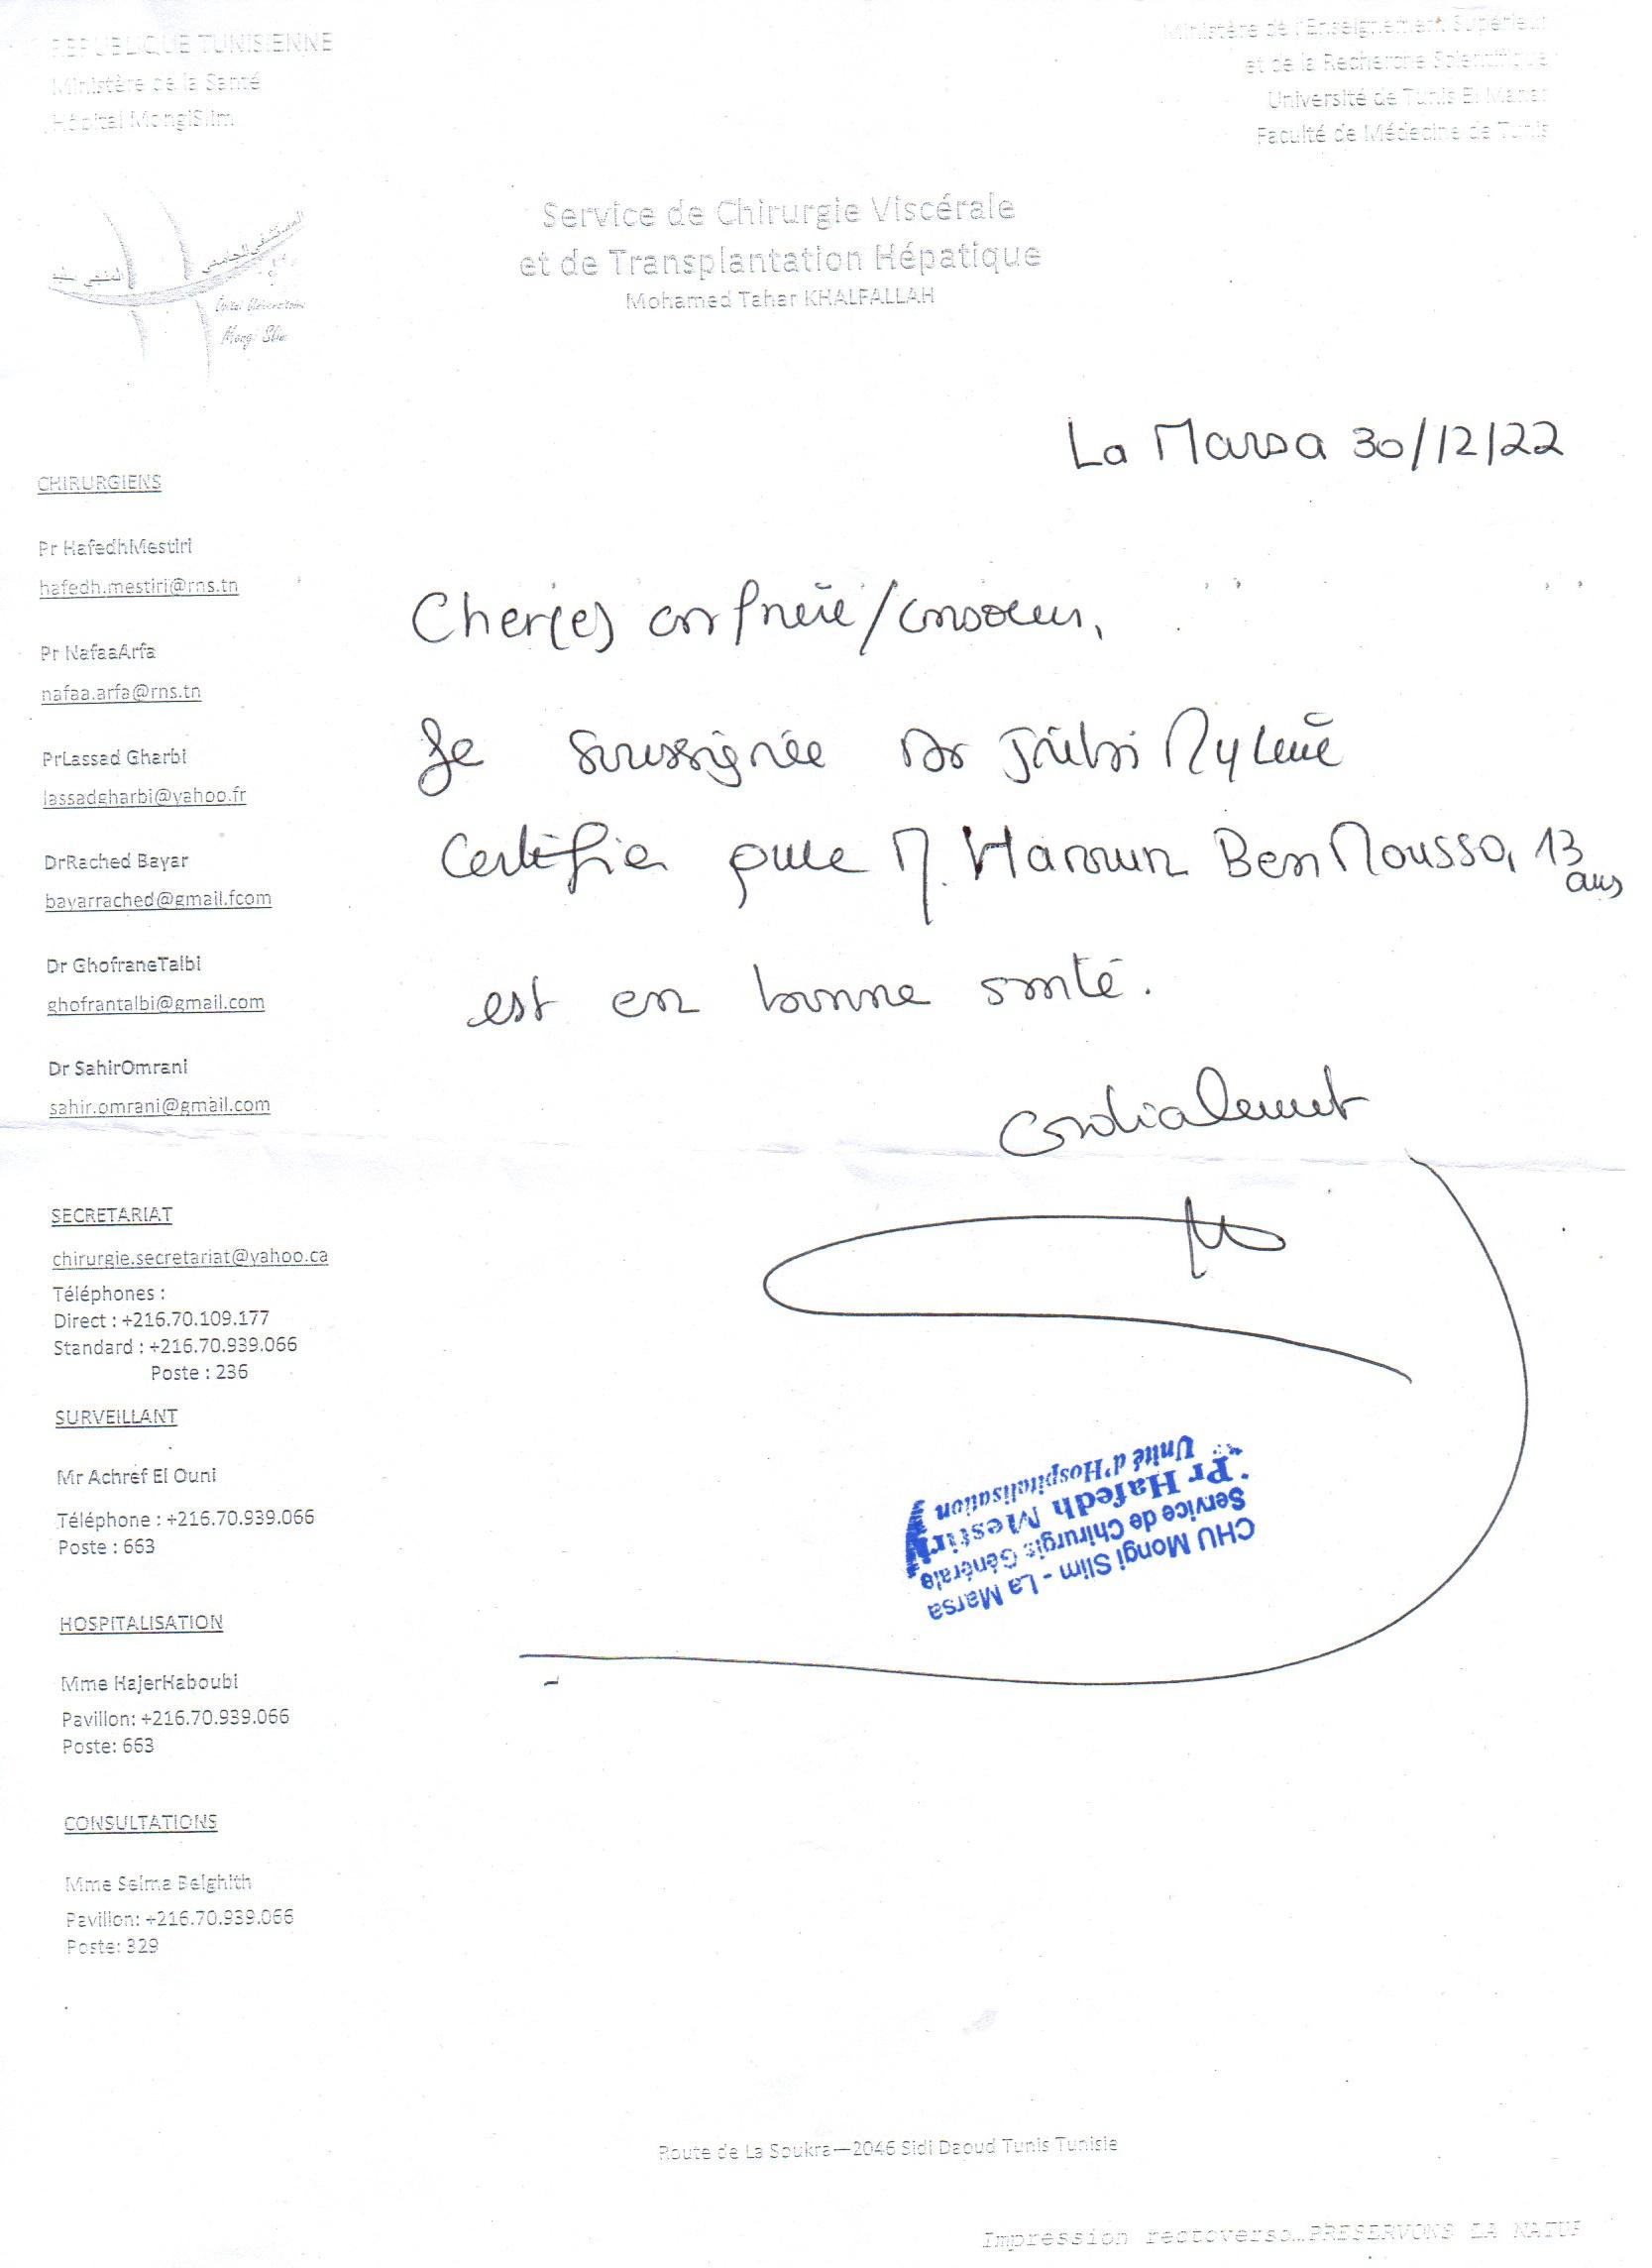 REPUBLIQUE TUNISIENNE
Ministère de la Santé
Hôpital MongiSlim
Ministère de l'Enseignement Supérieur
et de la Recherche Scientifique
Université de Tunis El Manar
Faculté de Médecine de Tunis
Service de Chirurgie Viscérale
et de Transplantation Hépatique
Mohamed Tahar KHALFALLAH
المستشفى الجامعي
المنجي سليم
Mongi Slim
La Marsa 30/12/22
Cher(e) confrère/consoeur,
Je soussignée Dr Mylène
Certifie que M. Haroun Ben Moussa, 13
ans
est en bonne santé.
Cordialement
CHIRURGIENS
Pr HafedhMestiri
hafedh.mestiri@rns.tn
Pr NafaaArfa
nafaa.arfa@rns.tn
PrLassad Gharbi
lassadgharbi@yahoo.fr
DrRached Bayar
bayarrached@gmail.fcom
Dr GhofraneTalbi
ghofrantalbi@gmail.com
Dr SahirOmrani
sahir.omrani@gmail.com
SECRETARIAT
chirurgie.secretariat@yahoo.ca
Téléphones :
Direct : +216.70.109.177
Standard : +216.70.939.066
Poste : 236
SURVEILLANT
Mr Achref El Ouni
Téléphone : +216.70.939.066
Poste : 663
HOSPITALISATION
Mme HajerHaboubi
Pavillon: +216.70.939.066
Poste: 663
CONSULTATIONS
Mme Selma Belghith
Pavillon: +216.70.939.066
Poste: 329
CHU Mongi Slim - La Marsa
Service de Chirurgie Générale
Pr Hafedh Mestiri
Unité d'Hospitalisation
Route de La Soukra—2046 Sidi Daoud Tunis Tunisie
Impression rectoverso…PRESERVONS LA NATUR